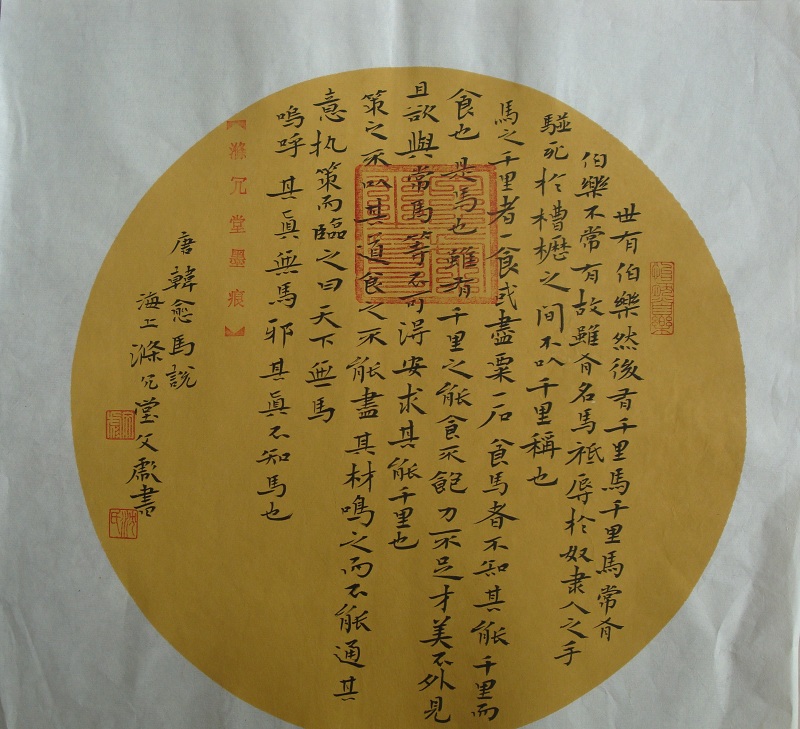 世有伯樂然後有千里馬千里馬常有
伯樂不常有故雖有名馬祗辱於奴隶人之手
駢死於槽櫪之间不以千里稱也
馬之千里者一食或盡粟一石食馬者不知其能千里而
食也是馬也雖有千里之能食不飽力不足才美不外見
且欲與常馬等不可得安求其能千里也
策之不以其道食之不能盡其材鳴之而不能通其
意执策而臨之曰天下無馬
嗚呼其眞無馬邪其眞不知馬也
【滌冗堂墨痕】
唐韓愈馬說
海上滌冗堂文書